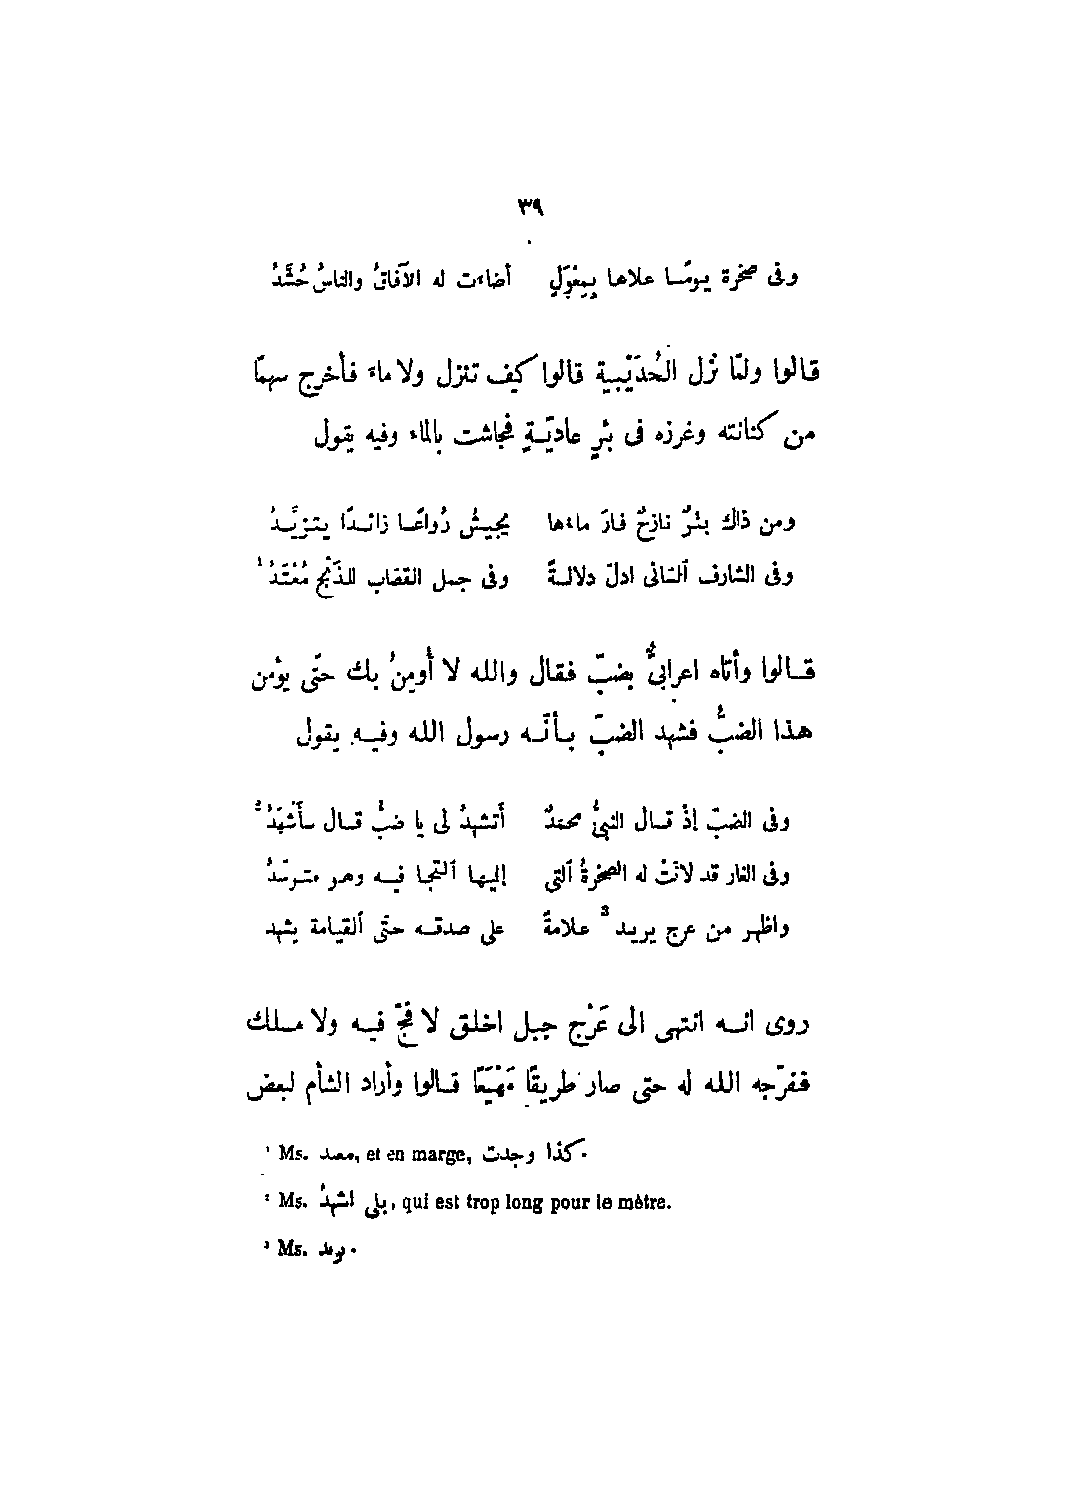 ٣٩
وفى صخرة يومًا علاها بِمِعْوَلٍ    أضاءت له الآفاقُ والناسُ حُشَّدُ
قالوا ولمّا نزل الحُدَيْبية قالوا كيف تنزل ولا ماء فأخرج سهمًا
من كنانته وغرزه فى بئرٍ عاديّةٍ فجاشت بالماء وفيه يقول
ومن ذاك بئرٌ نازحٌ فارَ ماءها    يجيشُ رُواعًا زائدًا يتزيَّدُ
وفى الشارف ٱلثانى ادلّ دلالةً    وفى جمل القصّاب للذَّبْح مُعْتَدُ¹
قالوا وأتاه اعرابىٌّ بضبّ فقال والله لا أُومِنُ بك حتّى يؤمن
هذا الضبُّ فشهد الضبّ بأنّه رسول الله وفيه يقول
وفى الضبّ إذْ قال النبىُّ محمدٌ    أتشهدُ لى يا ضبُّ قال سأَشْهَدُ²
وفى الغار قد لانَتْ له الصخرةُ ٱلتى    إليها ٱلتجا فيه وهو مترصّدُ
واظهر من عرج يريد³ علامةً    على صدقه حتّى ٱلقيامة يشهد
روى انه انتهى الى عَرْج جبل اخلق لا فجّ فيه ولا مسلك
ففرّجه الله له حتى صار طريقًا مَهْيَعًا قالوا وأراد الشأم لبعض
¹ Ms. معىد, et en marge, كذا وجدت.
² Ms. بلى اشهدُ, qui est trop long pour le mètre.
³ Ms. يرىد.